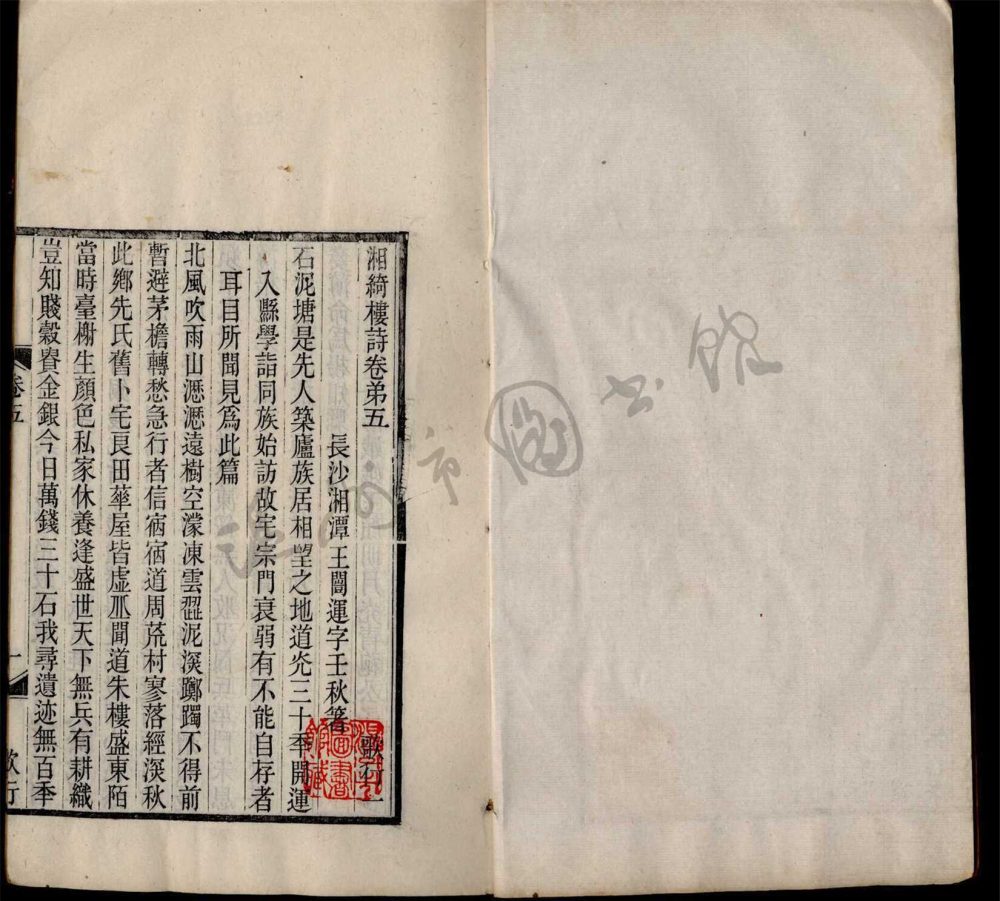 湘綺樓詩卷弟五
歌行一
長沙湘潭王闓運字壬秋箸
石泥塘是先人築廬族居相朢之地道光三十秊開運
入縣學詣同族始訪故宅宗門衰弱有不能自存者
耳目所聞見爲此篇
北風吹雨山濕濕遠樹空濛凍雲澀泥深躑躅不得前
暫避茅檐轉愁急行者信宿宿道周荒村寥落經深秋
此鄉先氏舊卜宅良田華屋皆虛丘聞道朱樓盛東陌
當時臺榭生顏色私家休養逢盛世天下無兵有耕織
豈知賤穀賮金銀今日萬錢三十石我尋遺迹無百秊
卷五
一
歌行
市圖書館
圖書館藏